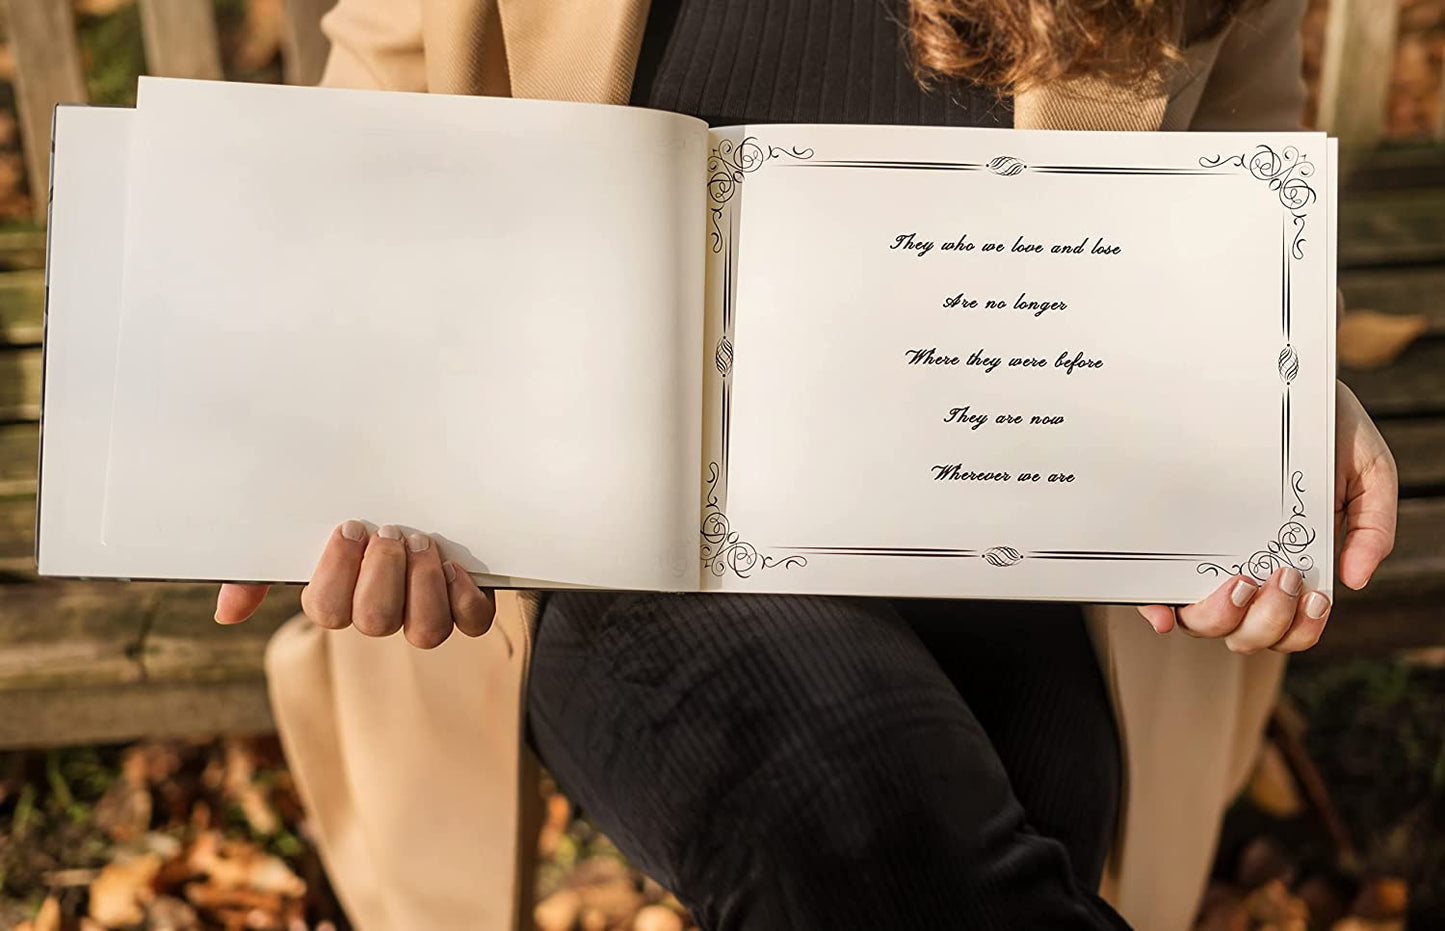 They who we love and lose
Are no longer
Where they were before
They are now
Wherever we are